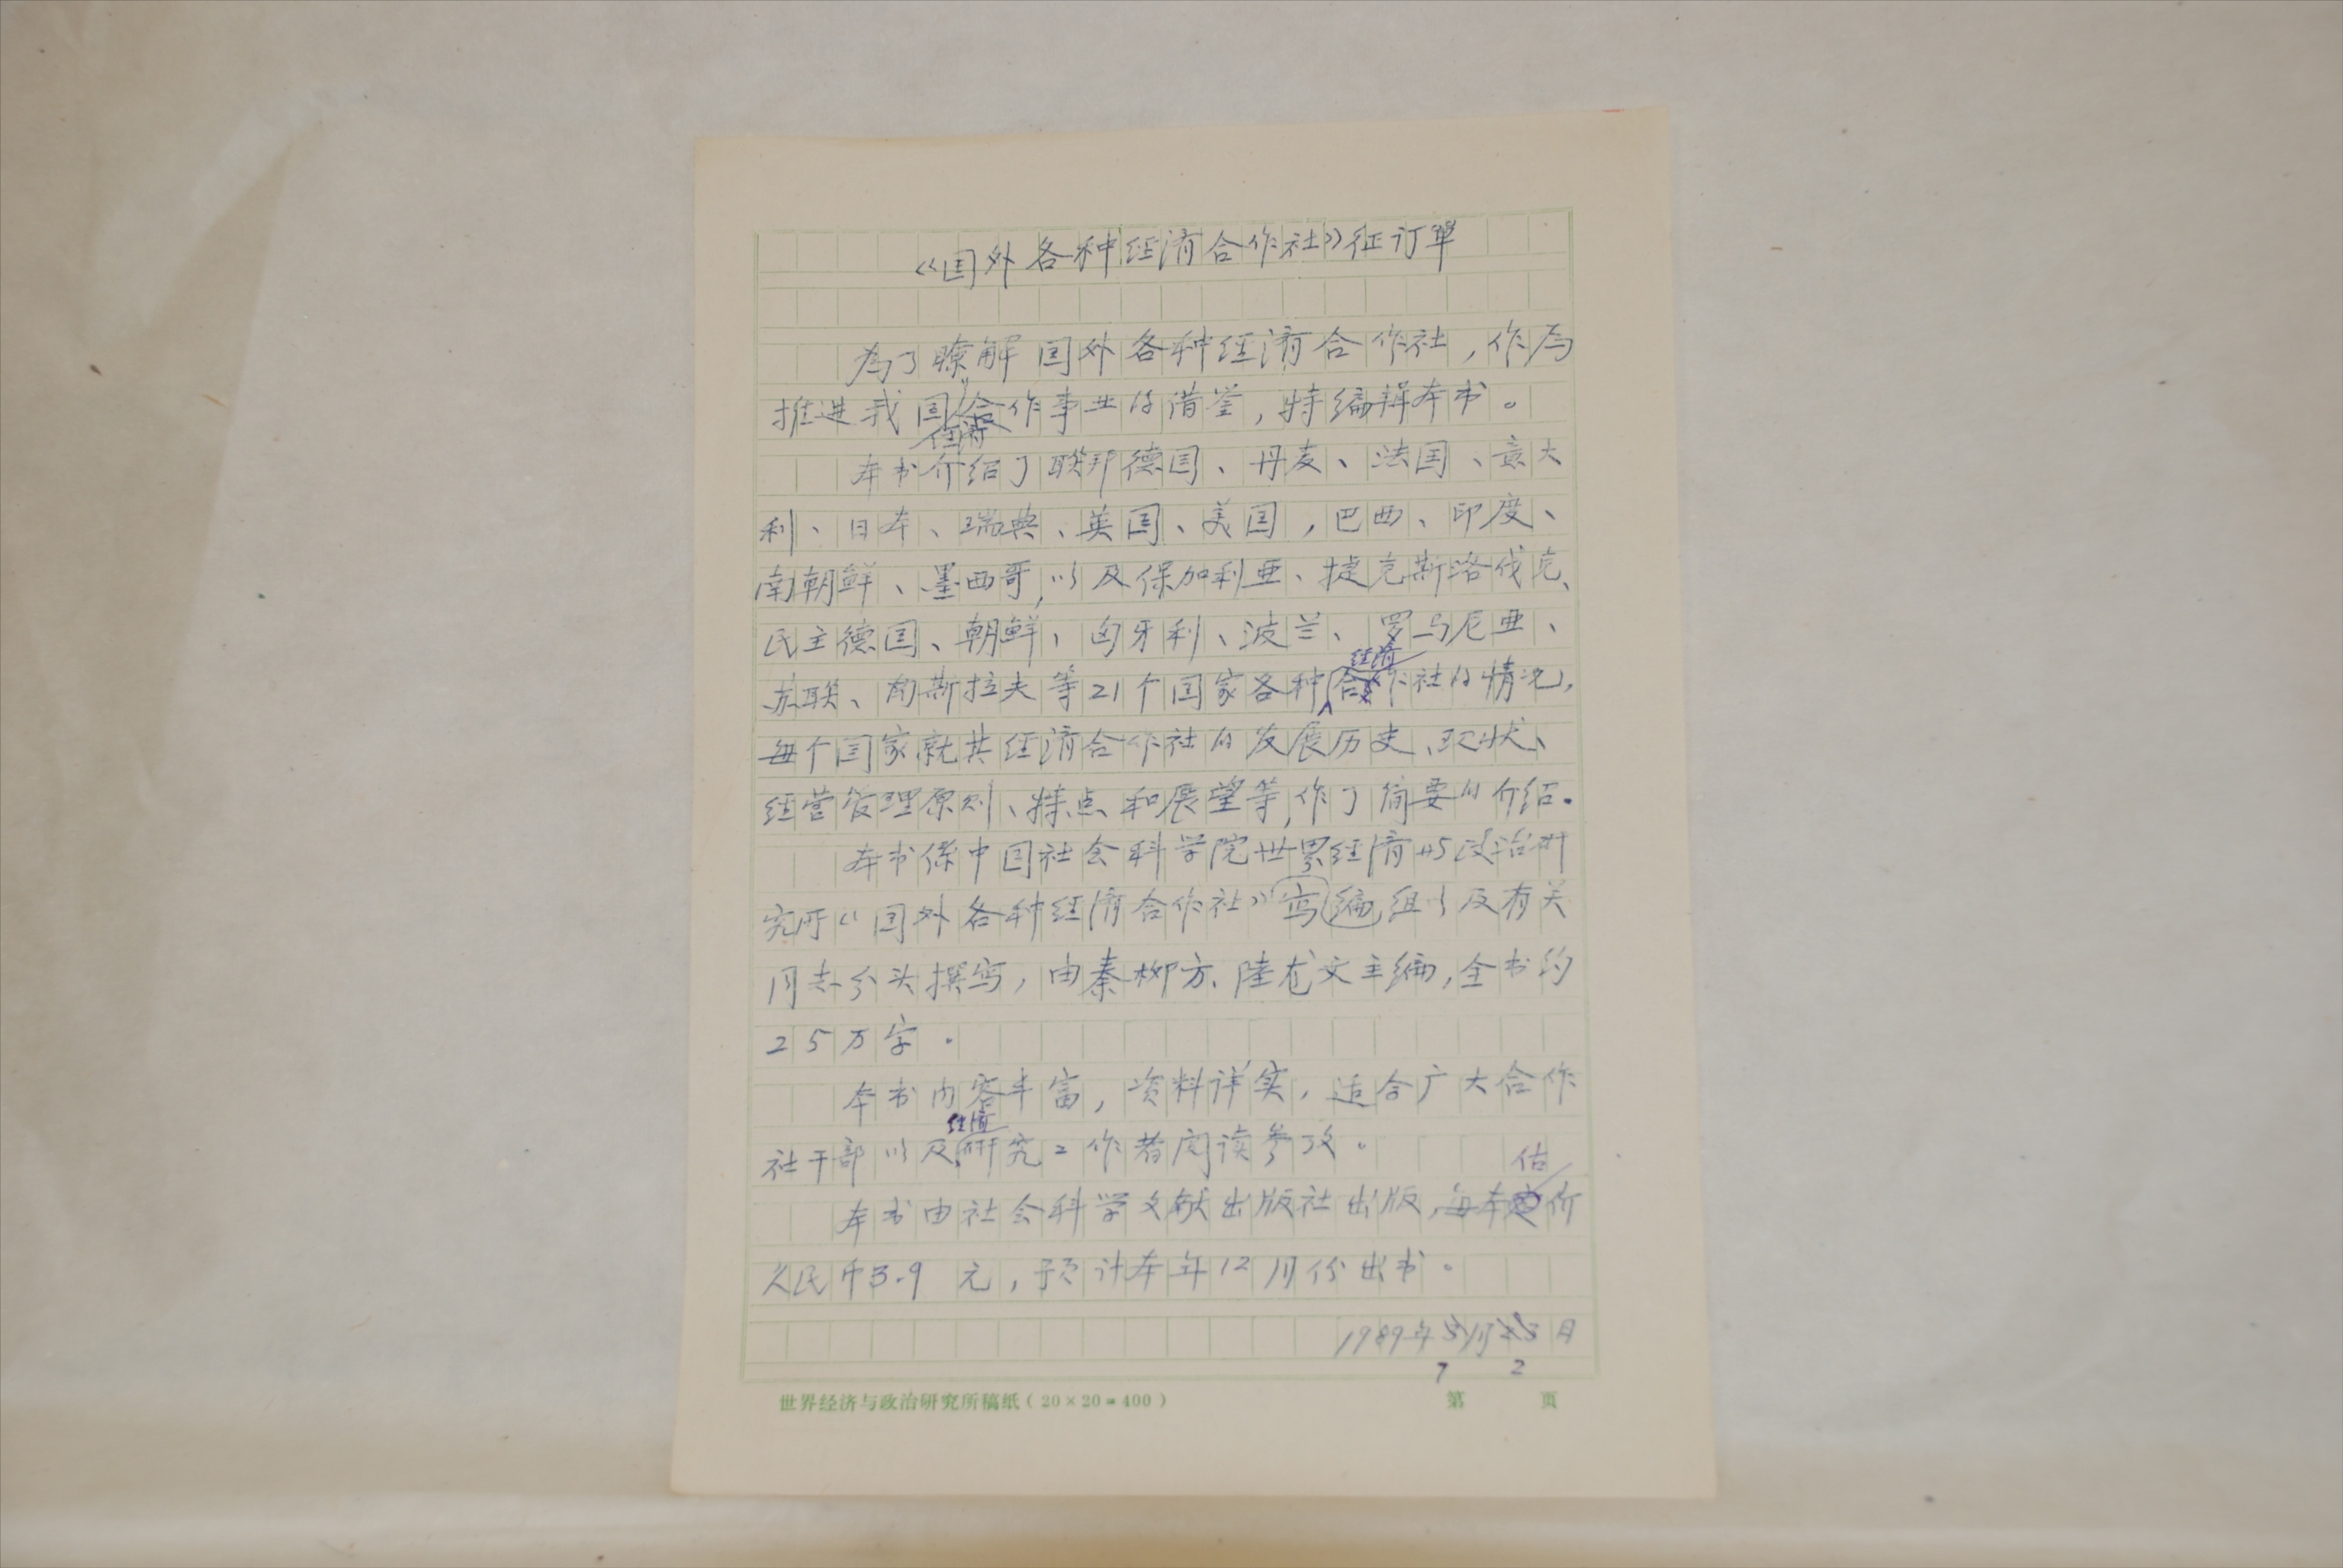 《国外各种经济合作社》征订单
为了瞭解国外各种经济合作社，作为
推进我国合作事业的借鉴，特编辑本书。
经济
本书介绍了联邦德国、丹麦、法国、意大
利、日本、瑞典、英国、美国，巴西、印度、
南朝鲜、墨西哥，以及保加利亚、捷克斯洛伐克、
民主德国、朝鲜、匈牙利、波兰、罗马尼亚、
经济
苏联、南斯拉夫等21个国家各种合作社的情况，
每个国家就其经济合作社的发展历史、现状、
经营管理原则、特点和展望等，作了简要的介绍。
本书係中国社会科学院世界经济与政治研
究所《国外各种经济合作社》写编组以及有关
同志分头撰写，由秦柳方、陆龙文主编，全书约
25万字。
本书内容丰富，资料详实，适合广大合作
经济
社干部以及研究工作者阅读参考。
估
本书由社会科学文献出版社出版，每本定价
人民币3.9元，预计本年12月份出书。
1989年5月23日
7 2
世界经济与政治研究所稿纸（20×20=400） 第 页